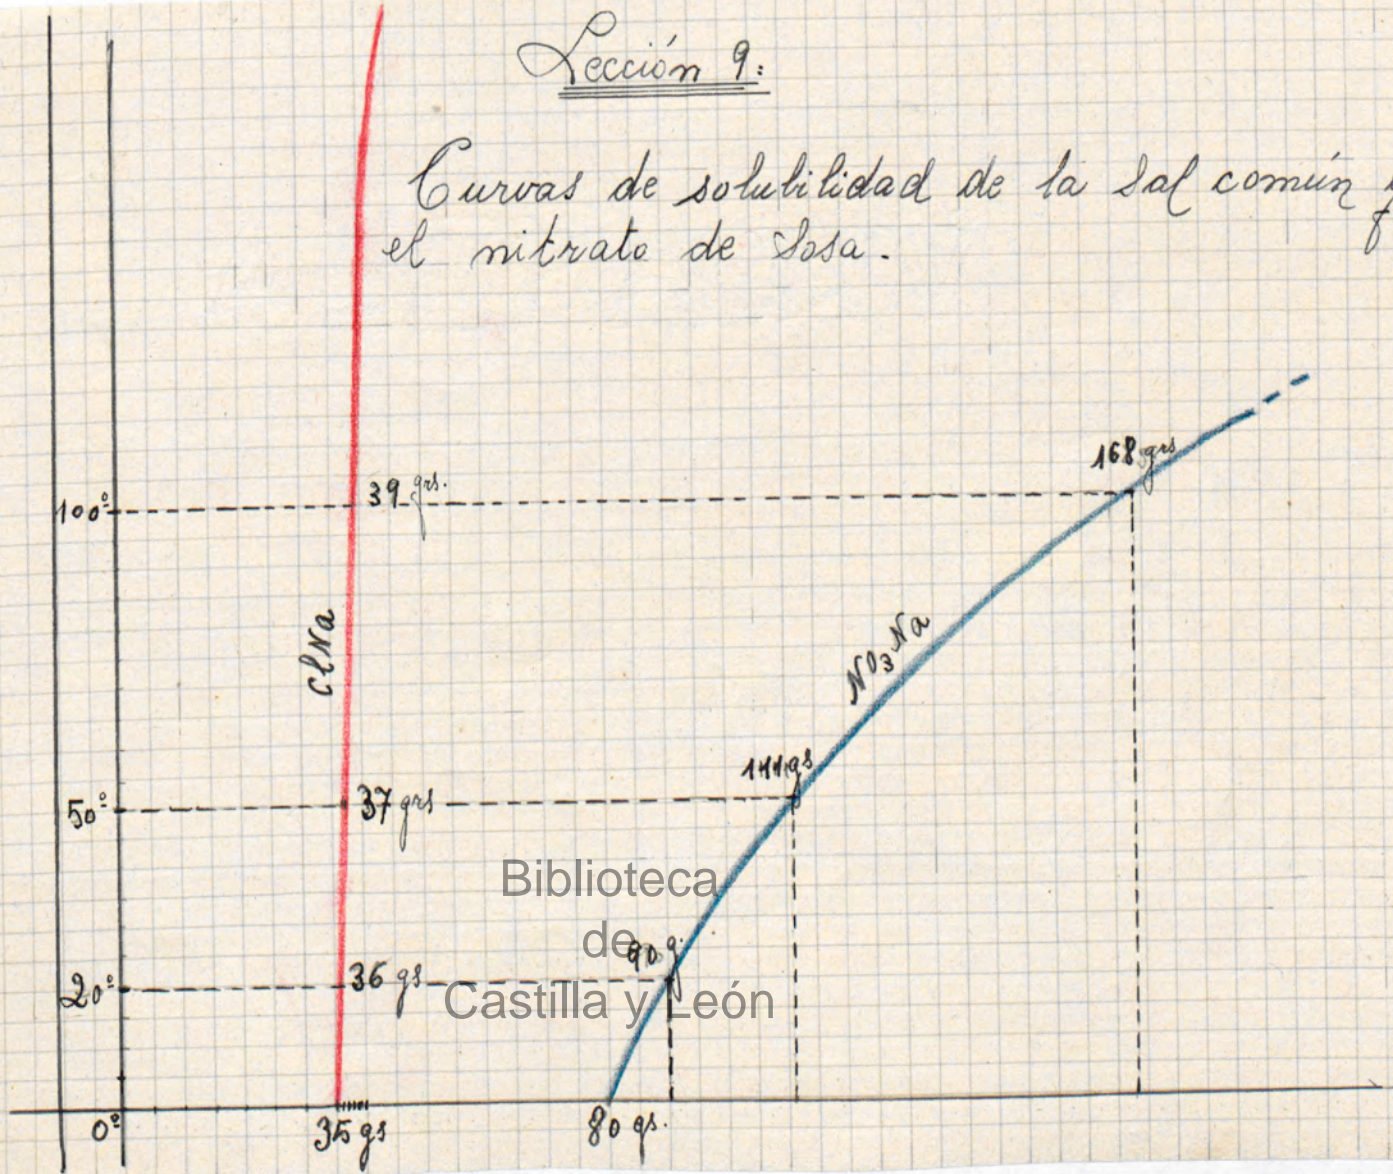 Lección 9:
Curvas de solubilidad de la Sal común y
el nitrato de Sosa.
168 grs
100º
39 grs.
ClNa
NO3Na
111 gs
50º
37 grs
Biblioteca
de
Castilla y León
90 g.
20º
36 gs
0º
35 gs
80 gs.